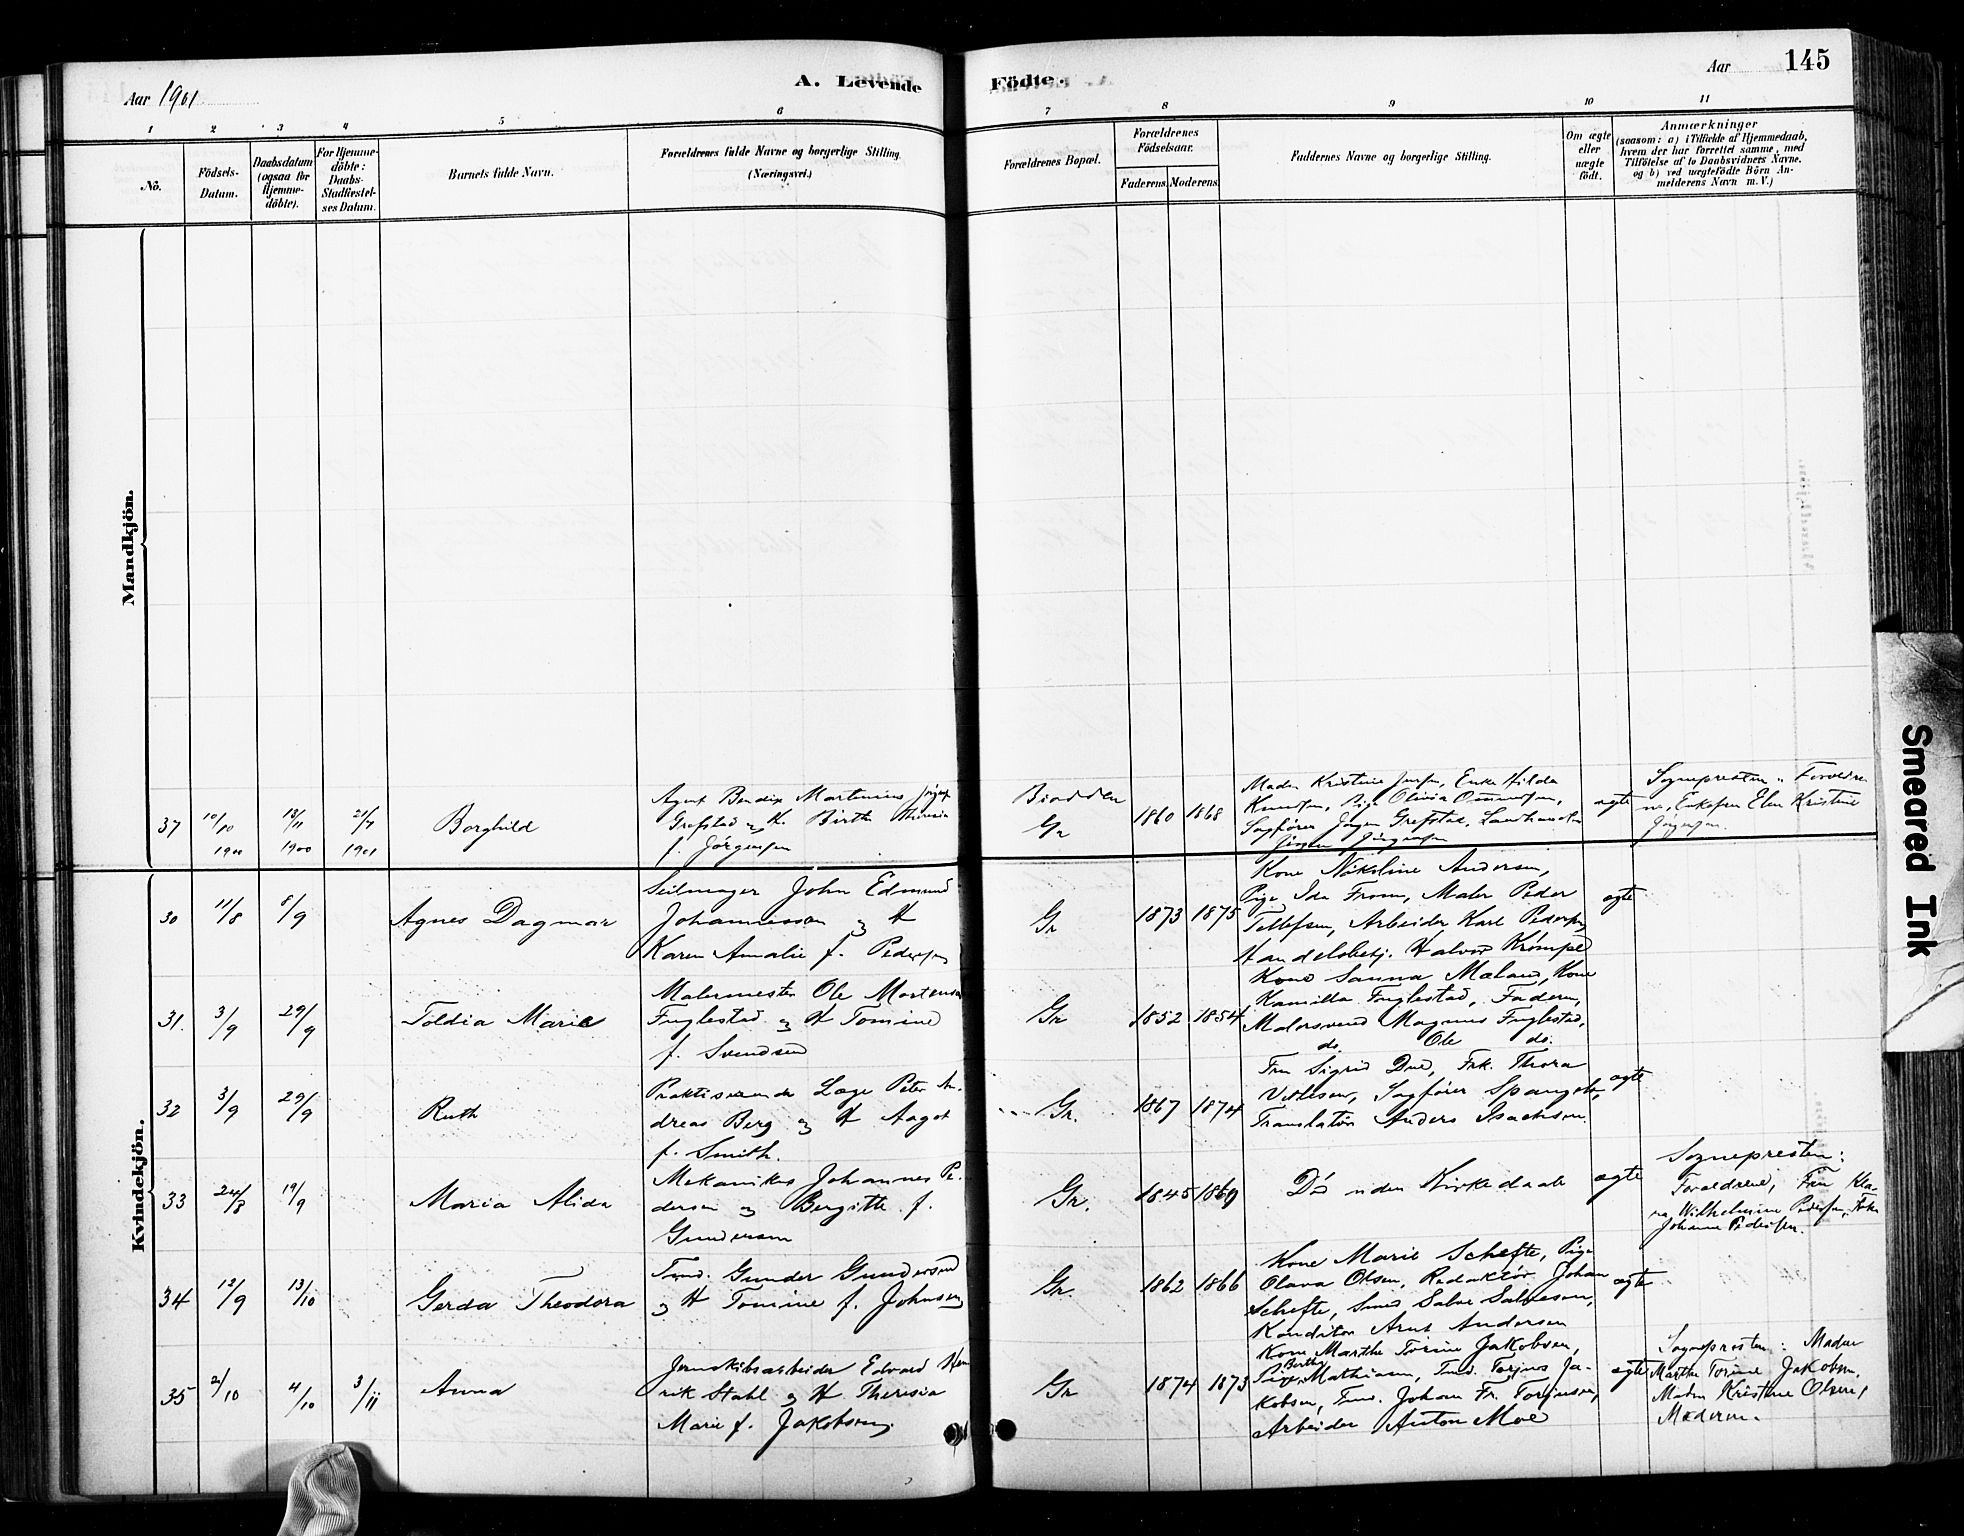 Aar 1901
A. Levende
Födte.
Aar
145
1 2 3 4 5 6 7 8 9 10 11
No.
Födsels-
Datum.
Daabsdatum
(ogsaa for
Hjemme-
döbte).
For Hjemme-
döbte:
Daabs-
Stadfæstel-
ses Datum.
Barnets fulde Navn.
Forældrenes fulde Navne og borgerlige Stilling.
(Næringsvei.)
Forældrenes Bopæl.
Forældrenes
Födselsaar.
Faderens. Moderens.
Faddernes Navne og borgerlige Stilling.
Om ægte
eller
uægte
födt.
Anmærkninger
(saasom: a) i Tilfælde af Hjemmedaab,
hvem der har forrettet samme, med
Tilföielse af to Daabsvidners Navne,
og b) ved uægtefödte Börn An-
melderens Navn m. V.)
Mandkjön.
37
10/10
1900
13/11
1900
21/7
1901
Borghild
Agent Bendix Martinius
Grefstad og H. Birth Theresia
f. Jørgensen
Gr
1860
1868
Madm Kristine Enke Hilda
Knudsen, Pige Olivia
Sagfører Jørgen Grefstad,
Jørgen Jörgensen
ægte
Sognepresten:
Elen Kristine
Jörgensen.
Kvindekjön.
30
11/8
8/9
Agnes Dagmar
Seilmager John Edmund
Johannesson og H
Karen Amalie f. Pedersen
Gr
1873
1875
Kone Nikoline Andersen,
Pige Ida From, Maler Peder
Tellefsen, Arbeider Karl Pedersen,
Handelsbetj. Halvor
ægte
31.
3/9
29/9
Toldia Marie
Malermester Ole Mortensen
Fuglestad og H Tomine
f. Svendsen
Gr
1852
1854
Kone Sanna Mæland, Kone
Kamilla Fuglestad, Faderen,
Malersvend Magnus Fuglestad,
do. Ole do.
32
3/9
29/9
Ruth
Praktiserende Læge Peter An-
dreas Berg og H Aagot
f. Smith.
Gr.
1867
1874
Fru Sigrid Due, Frk. Thora
Sagfører
Translatör Anders Isachsen.
ægte
33
24/8
19/9
Maria Alida
Mekanikus Johannes Pe-
dersen og Bergitte f.
Gundersen
Gr.
1845
1869
Död uden Kirkedaab
ægte
Sognepresten:
Forældrene, Fru Kla-
ra Wilhelmine Pedersen, Frk
Johanne Pedersen.
34
12/9
13/10
Gerda Theodora
Tmd. Gunder Gundersen
og H Tomine f. Johnsen
Gr.
1862
1866
Kone Marie Schefte, Pige
Olava Olsen, Redaktör Johan
Schefte, Smed Salve Salvesen,
Konditor Arnt Andersen
ægte
35
2/10
4/10
3/11
Anna
Jernskibsarbeider Edvard Hen-
rik Stahl og H Theresia
Marie f. Jakobsen.
Gr
1874
1873
Kone Marthe Torine Jakobsen,
Pige Berthe Mathiasen, Tmd. Torjus Ja-
kobsen, Tmd. Johan Fr. Torjusen,
Arbeider Anton Moe
ægte
Sognepresten: Madam
Marthe Torine Jakobsen,
Madm Kristine Olsen,
Moderen.
Smeared Ink